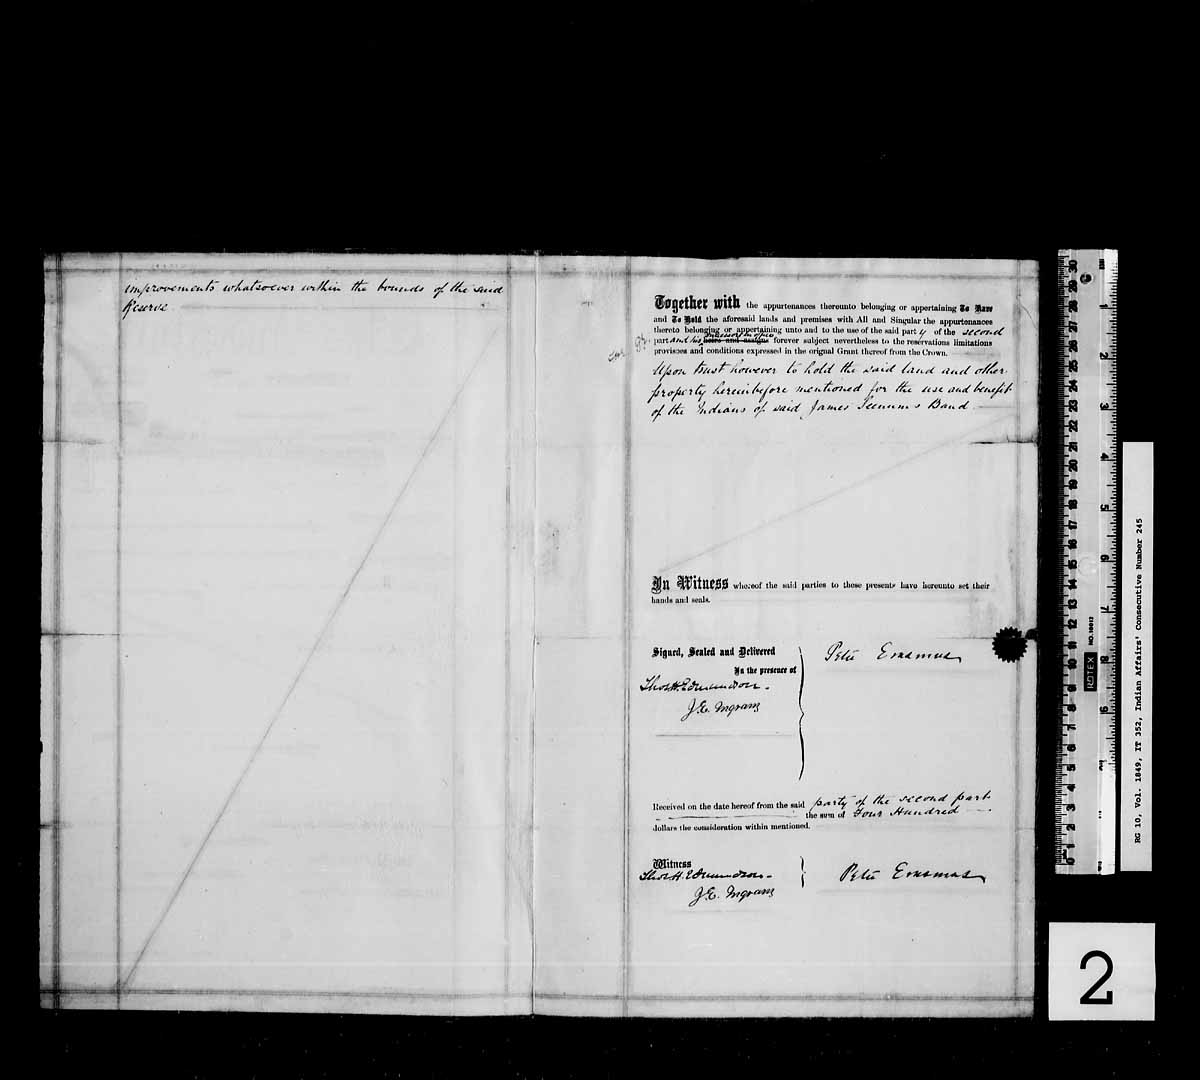 improvements whatsoever within the bounds of the said
Reserve
Together with the appurtenances thereunto belonging or appertaining To Have
and To Hold the aforesaid lands and premises with All and Singular the appurtenances
thereto belonging or appertaining unto and to the use of the said part y of the second
part and his successors in office heirs and assigns forever subject nevertheless to the reservations limitations
provisoes and conditions expressed in the orignal Grant thereof from the Crown.
Upon trust however to hold the said land and other
property hereinbefore mentioned for the use and benefit
of the Indians of said James Seenum's Band.
In Witness whereof the said parties to these presents have hereunto set their
hands and seals.
Signed, Sealed and Delivered
In the presence of
Thos H. Edmundson.
J.E. Ingram
Peter Erasmus
Received on the date hereof from the said party of the second part
the sum of Four Hundred
dollars the consideration within mentioned.
Witness
Thos H. Edmundson.
J.E. Ingram
Peter Erasmus
30 29 28 27 26 25 24 23 22 21 20 19 18 17 16 15 14 13 12 11 10 9 8 7 6 5 4 3 2 1 0
1 2 3 4 5 6 7 8 9
ROTEX
RG 10, Vol. 1849, IT 352, Indian Affairs' Consecutive Number 245
2